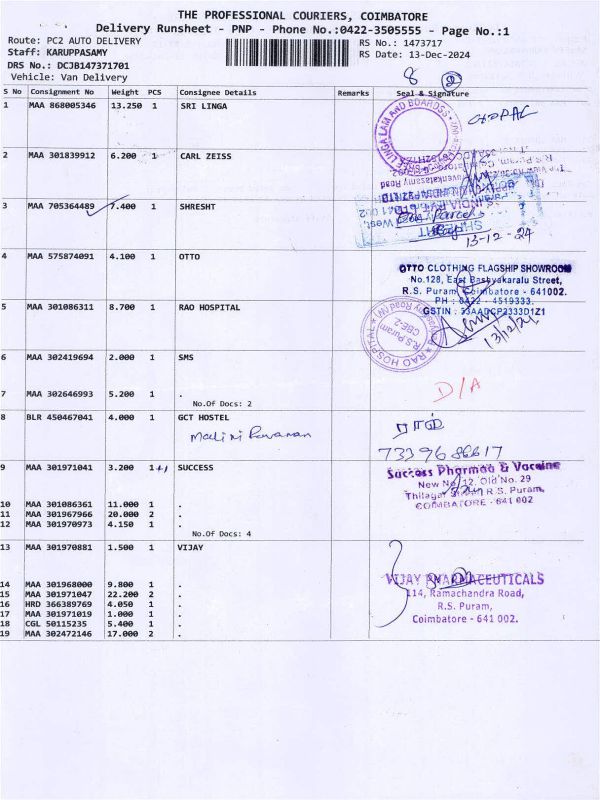 THE PROFESSIONAL COURIERS, COIMBATORE
Delivery Runsheet - PNP - Phone No.:0422-3505555 - Page No.:1
Route: PC2 AUTO DELIVERY
RS No.: 1473717
Staff: KARUPPASAMY
RS Date: 13-Dec-2024
DRS No.: DCJB147371701
Vehicle: Van Delivery
8
S No Consignment No Weight PCS Consignee Details Remarks Seal & Signature
1 MAA 868005346 13.250 1 SRI LINGA
2 MAA 301839912 6.200 1 CARL ZEISS
3 MAA 705364489 7.400 1 SHRESHT
13-12-24
4 MAA 575874091 4.100 1 OTTO
OTTO CLOTHING FLAGSHIP SHOWROOM
No.128, East Bashyakaralu Street,
R.S. Puram, Coimbatore - 641002.
PH : 0422 - 4519333.
GSTIN : 33AADCP2333D1Z1
5 MAA 301086311 8.700 1 RAO HOSPITAL
RAO HOSPITAL
R.S. Puram
CBE-2
13/12/24
6 MAA 302419694 2.000 1 SMS
7 MAA 302646993 5.200 1 .
No.Of Docs: 2
D/A
8 BLR 450467041 4.000 1 GCT HOSTEL
ராம்
9 MAA 301971041 3.200 1 +1 SUCCESS
Success Pharmaa & Vaccine
New No. 12, Old No. 29
Thilagar Street R.S. Puram,
COIMBATORE - 641 002
10 MAA 301086361 11.000 1 .
11 MAA 301967966 20.000 2 .
12 MAA 301970973 4.150 1 .
No.Of Docs: 4
13 MAA 301970881 1.500 1 VIJAY
VIJAY PHARMACEUTICALS
114, Ramachandra Road,
R.S. Puram,
Coimbatore - 641 002.
14 MAA 301968000 9.800 1 .
15 MAA 301971047 22.200 2 .
16 HRD 366389769 4.050 1 .
17 MAA 301971019 1.000 1 .
18 CGL 50115235 5.400 1 .
19 MAA 302472146 17.000 2 .